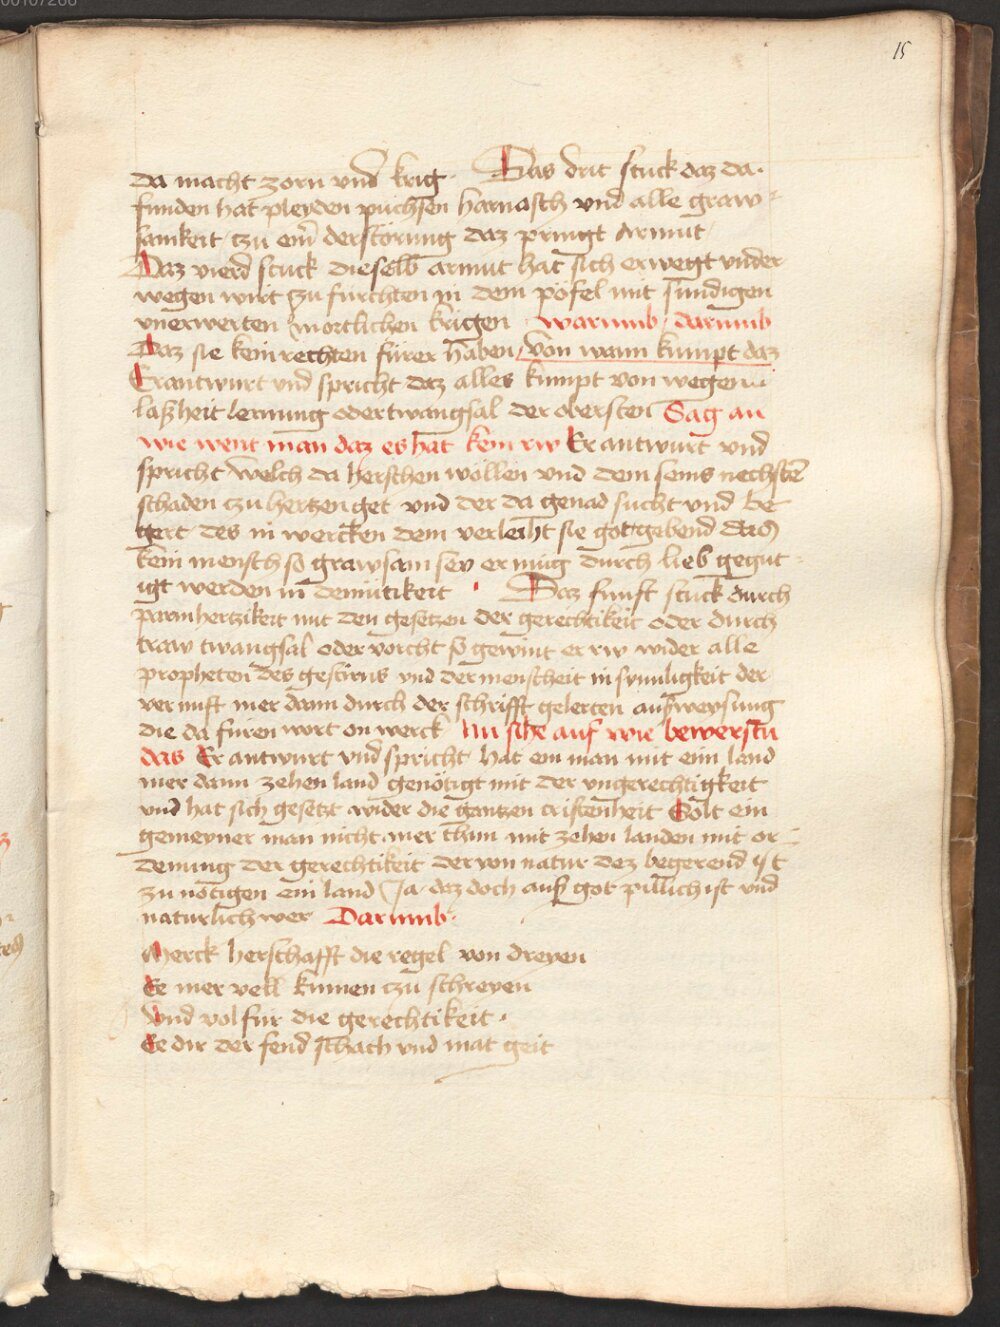 00107206
15
da macht zorn vnd krig · Das drit stuck daz da·
funden hat pleyden puchsen harnasch vnd alle graw-
samkeit / czu em̃ derstorung daz pringt Armut /
Daz vierd stuck dieselb armut hat sich erwegt vnder
wegen wirt zu furchten in dem pöfel mit sundigen
vnerwerten mortlichen krigen Warumb / darumb
Daz sie kein rechten fürer haben / Von wann kumpt daz
Er antwurt vnd spricht daz alles kumpt von wegen
laßheit lernung oder twangsal der obersten Sag an
wie went man daz es hat kein rw Er antwurt vnd
spricht welch da herschen wollen vnd dem seins nechstē
schaden czu hertzen get vnd der da genad sucht vnd be
gert des in wercken dem verleiht sie got gebend das
kein mensch so grawsam sey er mug durch lieb gegut-
igt werden in demutikeit · Daz funft stuck durch
parmhertzikeit mit den gesetzen der gerechtikeit oder durch
traw twangsal oder vorcht so gewint er rw wider alle
propheten des gestirns vnd der menscheit in synnligkeit der
vernuft mer dann durch der schrifft gelerten außweysung
die da furen wort on werck Nu sihe auf wie bewerstu
das Er antwurt vnd spricht hat ein man mit eim land
mer dann zehen land genötigt mit der vngerechtigkeit
vnd hat sich gesetzt wider die gantzen cristenheit Solt ein
gemeyner man nicht mer thun mit zehen landen mit or-
denung der gerechtikeit der von natur dez begerend ist
zu nötigen ein land / Ja / daz doch auß got pillich ist vnd
naturlich wer Darumb·
Merck herschafft die regel von dreyen
Ee mer vell kumen czu schreyen
Vnd volfur die gerechtikeit ·
Ee dir der feind schach vnd mat geit